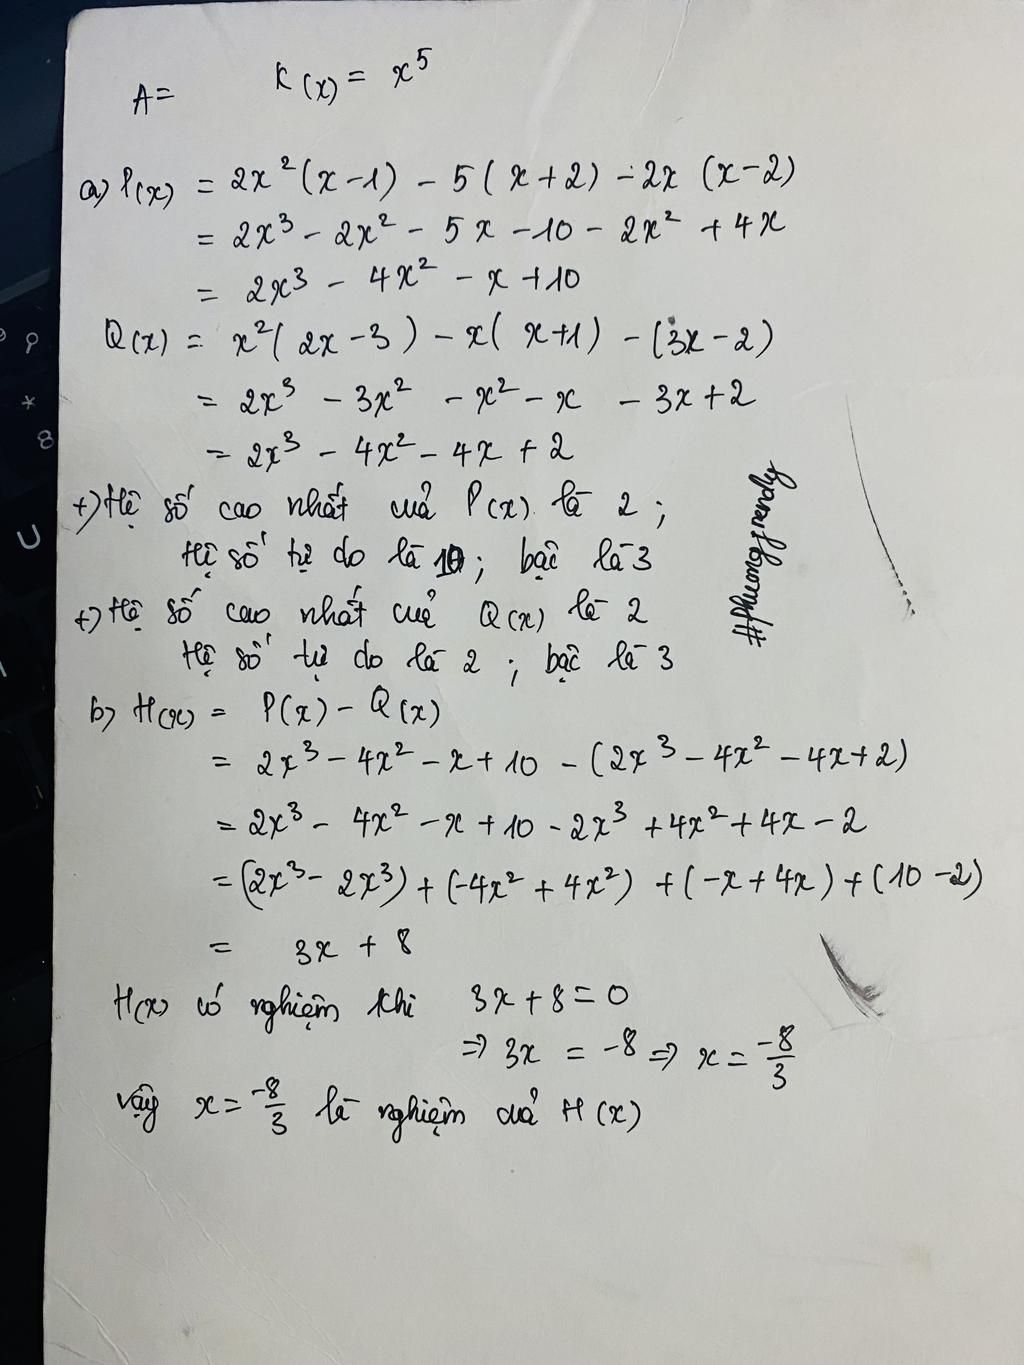 A= K(x) = x⁵
a) P(x) = 2x²(x-1) - 5(x+2) - 2x (x-2)
= 2x³ - 2x² - 5x - 10 - 2x² + 4x
= 2x³ - 4x² - x + 10
Q(x) = x²(2x-3) - x(x+1) - (3x-2)
= 2x³ - 3x² - x² - x - 3x + 2
= 2x³ - 4x² - 4x + 2
+) Hệ số cao nhất của P(x) là 2 ;
Hệ số tự do là 10 ; bậc là 3
+) Hệ số cao nhất của Q(x) là 2
Hệ số tự do là 2 ; bậc là 3
#phuongfriendly
b) H(x) = P(x) - Q(x)
= 2x³ - 4x² - x + 10 - (2x³ - 4x² - 4x + 2)
= 2x³ - 4x² - x + 10 - 2x³ + 4x² + 4x - 2
= (2x³ - 2x³) + (-4x² + 4x²) + (-x + 4x) + (10 - 2)
= 3x + 8
H(x) có nghiệm khi 3x + 8 = 0
=> 3x = -8 => x = -8/3
Vậy x = -8/3 là nghiệm của H(x)